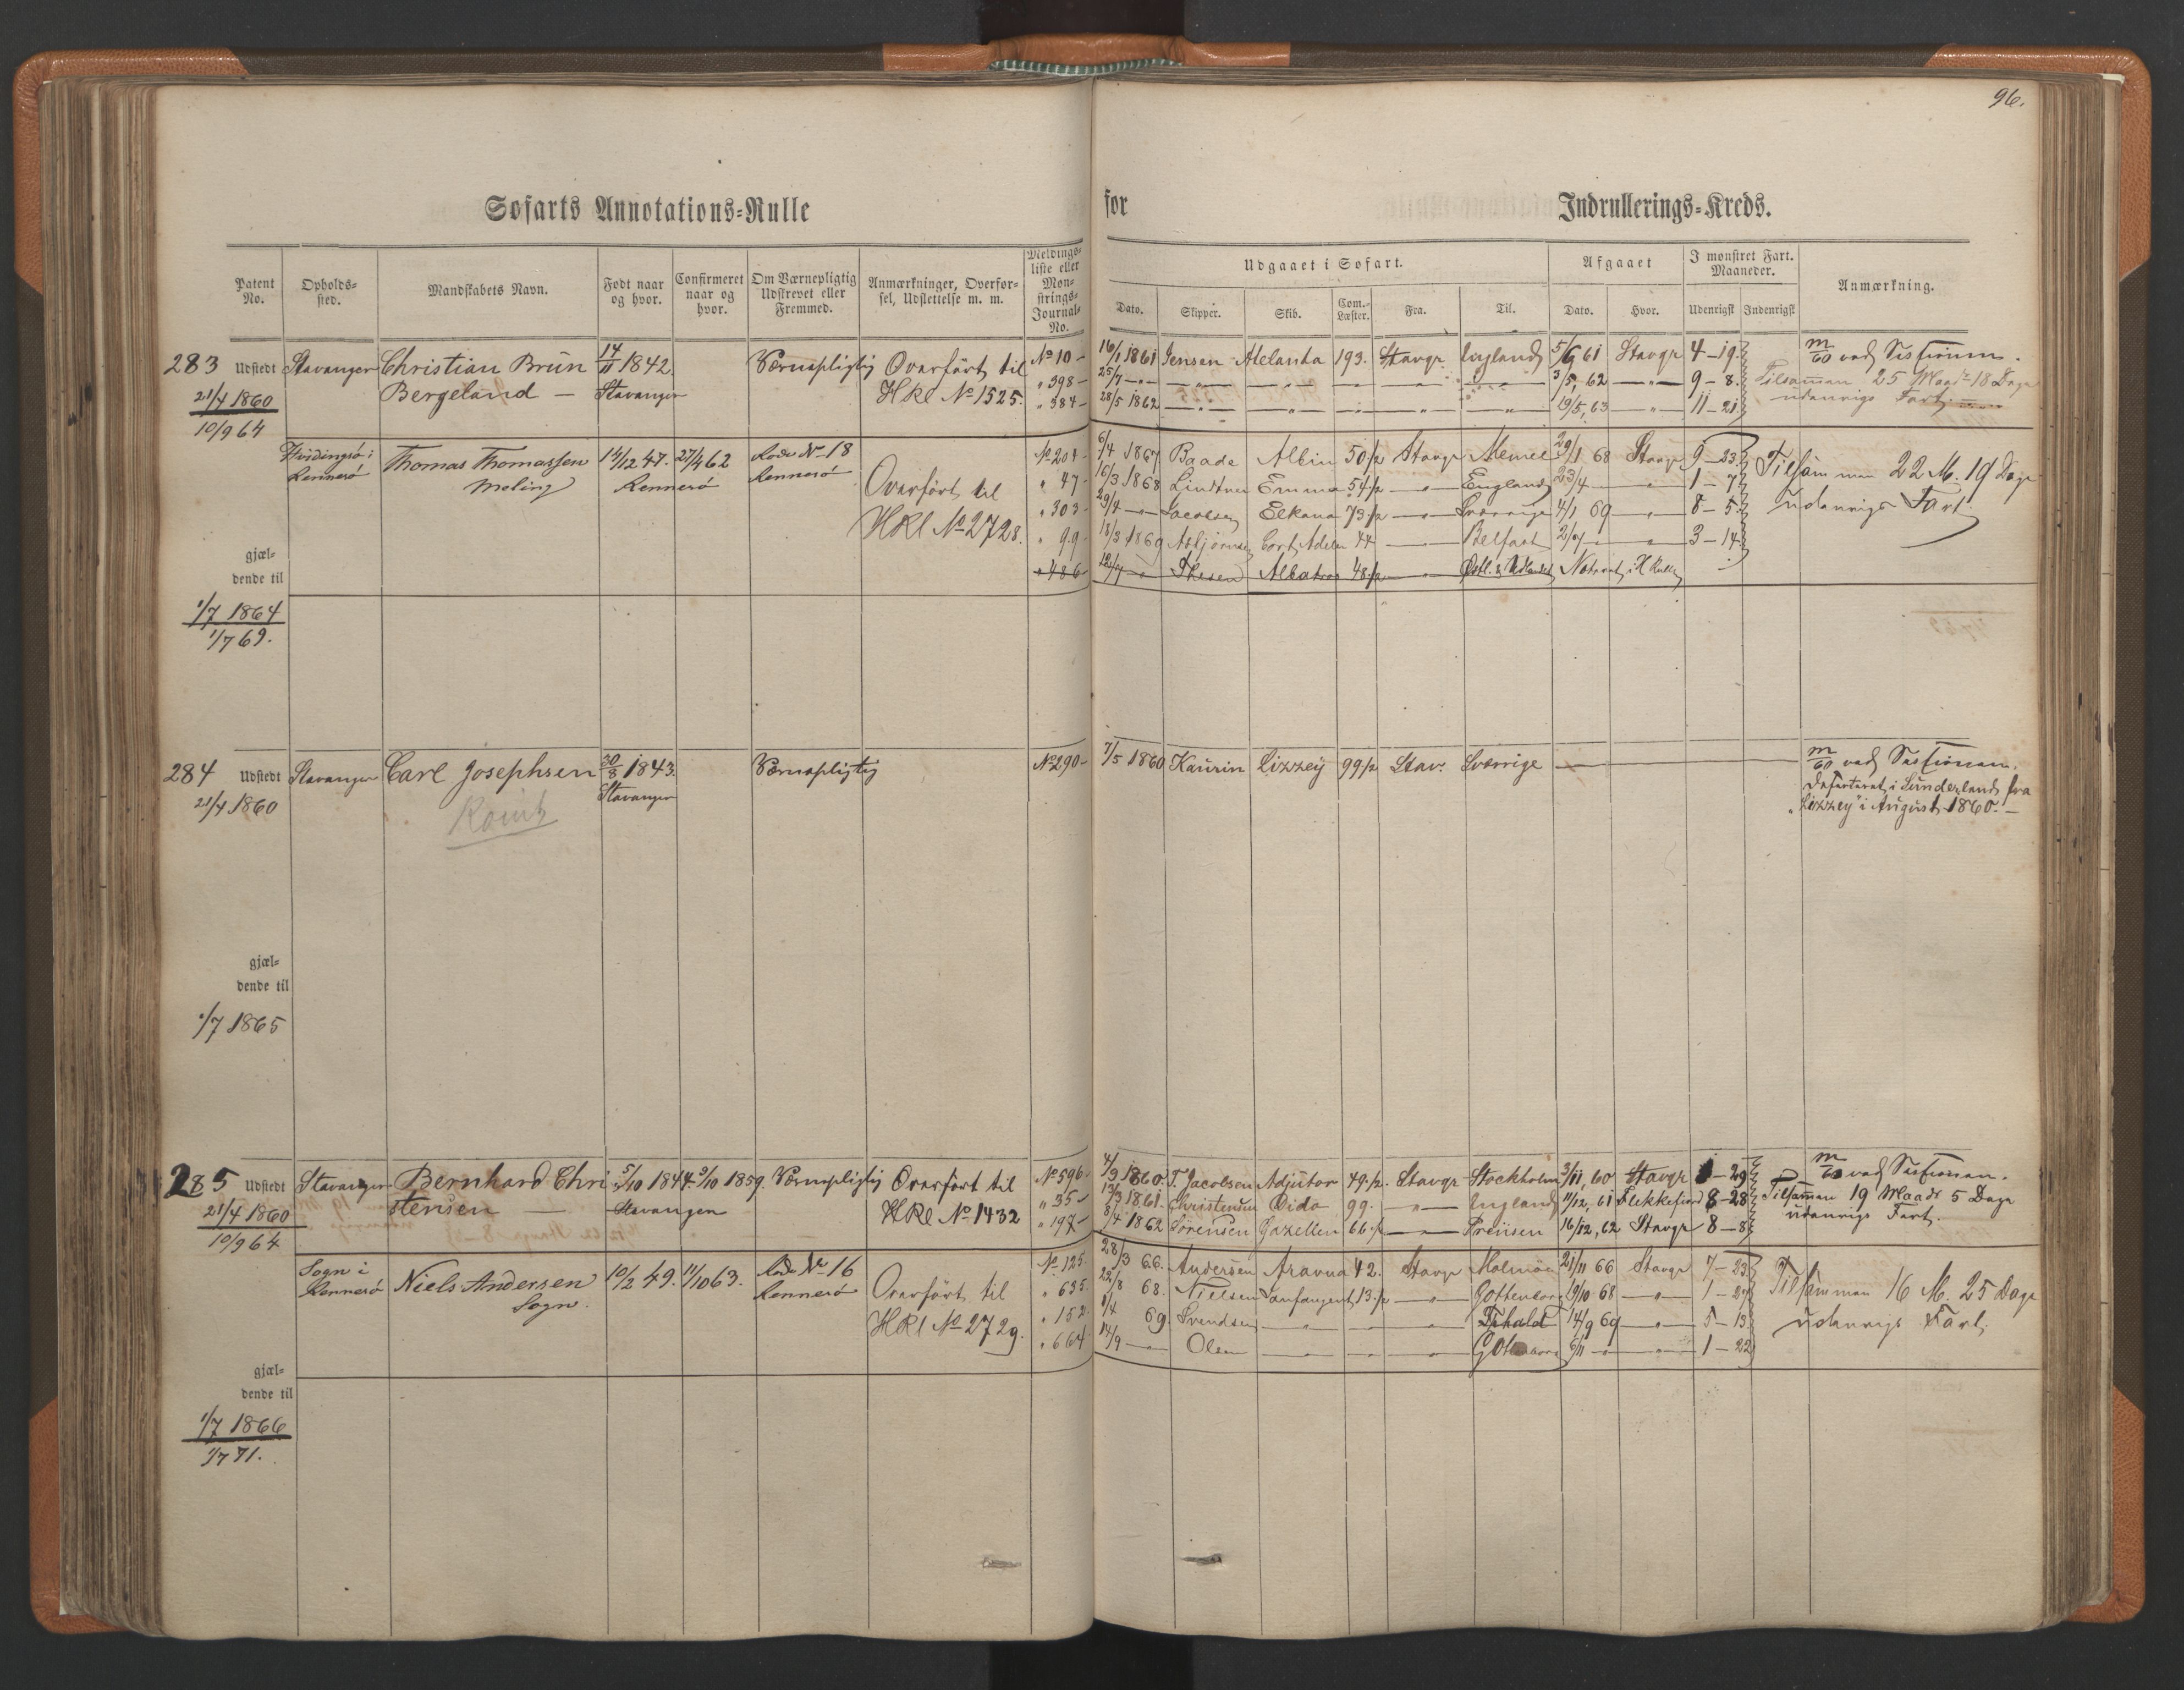 96.
Søfarts Annotations-Rulle for Indrullerings-Kreds.
Patent No. Opholds-sted. Mandskabets Navn. Født naar og hvor. Confirmeret naar og hvor. Om Værnepligtig Udskrevet eller Fremmed. Anmærkninger, Overførsel, Udslettelse m. m. Meldings-liste eller Mønstrings-Journal-No.
Udgaaet i Søfart. Afgaaet I mønstret Fart. Maaneder. Anmærkning.
Dato. Skipper. Skib. Com.-Læster. Fra. Til. Dato. Hvor. Udenrigsk Indenrigsk
283 Udstedt Stavanger Christian Brün 14/11 1842. Værnepligtig Overført til No 10 - 16/1 1861 Jensen Atelanta 193. Stavgr England 5/6 61 Stavgr 4-19. m/60 ved Sessionen.
21/4 1860 Bergeland — Stavanger HRl No 1525. " 398 - 25/7 — " — — " — — " — — — " — — " — 3/5, 62 — " — 9-8. Tilsammen 25 Maadr 18 Dage
10/9 64 " 384 - 28/5 1862 — " — — " — — — " — — " — 19/5, 63 — " — 11-21 udenrigs Fart
Hvidingsø i Thomas Thomassen 14/12 47. 27/4 62 Rode No 18 No 204 - 6/4 1867 Baade Albin 50 1/2 Stavgr Memel 29/1 68 Stavgr 9-23. Tilsammen 22 M. 19 Dage
Rennesø Meling Rennesø Rennesø Overført til " 47 - 16/3 1868 Lindtner Emma 54 1/2 — " — England 23/4 — " — 1-7 udenrigs Fart.
HRl No 2728. " 303 - 29/4 — " — Jacobsen Elkana 73 1/2 — " — Sverrige 4/1 69 — " — 8-5.
" 99 - 18/3 1869 Asbjørnsen Cort Adeler 44 — " — Belfast 2/7 — " — — " — 3-14
gjæl-
dende til " 486 - Thesen Albatros 48 1/2 — " — Østl. & Udlandet Noteret i H Rullen
1/7 1864
1/7 69.
284 Udstedt Stavanger Carl Josephsen 30/8 1843. Værnepligtig No 290 - 7/5 1860 Kaurin Lizzey 99 1/2 Stav. Sverrige — m/60 ved Sessionen.
21/4 1860 Stavanger Deserteret i Sunderland fra
"Lizzey" i August 1860. —
gjæl-
dende til
1/7 1865
285 Udstedt Stavanger Bernhard Chri- 5/10 1844. 9/10 1859. Værnepligtig Overført til No 596 - 4/9 1860. T. Jacobsen Adjutor 49 1/2. Stavgr Stockholm 3/11, 60 Stavgr 1-29 m/60 ved Sessionen.
21/4 1860 stensen — Stavanger HRl No 1432 " 35 - 1861. Christensen Dido 99. — " — England 11/12, 61 Flekkefjord 8-28 Tilsammen 19 Maadr 5 Dage
10/9 64 " 197 - 8/4 1862 Sørensen Gazellen 66 1/2 — " — Preüsen 16/12, 62 Stavgr 8-8 udenrigs Fart.
Sogn i Niels Andersen 10/2 49. 11/10 63. Rode No 16 No 125. 28/3 66. Andersen Aravna 42. Stavgr Malmöe 21/11 66 Stavgr 7-23 Tilsammen 16 M. 25 Dage
Rennesø Sogn. Rennesø Overført til " 635. 22/8 68. Nielsen 13 1/2 — " — Gottenborg 19/10 68 — " — 1-27 udenrigs Fart.
HRl No 2729. " 152. 1/4 69. Svendsen — " — — " — Frhald 14/9 69 — " — 5-13
" 664 14/9 — " — Olsen — " — Gottenborg 6/11 — " — — " — 1-22
gjæl-
dende til
1/7 1866
1/7 71.